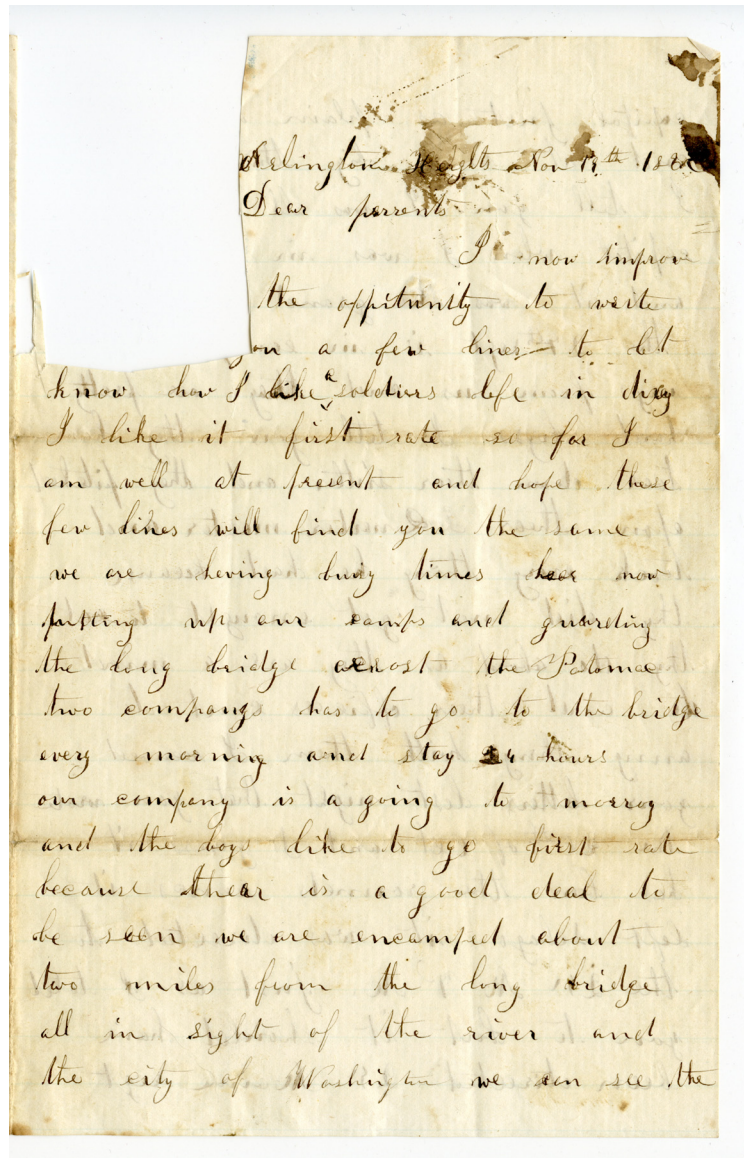 Arlington Heights Nov 17th 186
Dear perrents
I now improv
the oppitunity to write
you a few lines to let
know how I like a soldiers life in dixy
I like it first rate so far I
am well at present and hope these
few lines will find you the same
we are having buisy times hear now
putting up our camps and guarding
the long bridge acrost the Potomac
two companys has to go to the bridge
every morning and stay 24 hours
our company is a going to morroy
and the boys like to go first rate
because thear is a good deal to
be seen we are encamped about
two miles from the long bridge
all in sight of the river and
the city of Washington we can see the